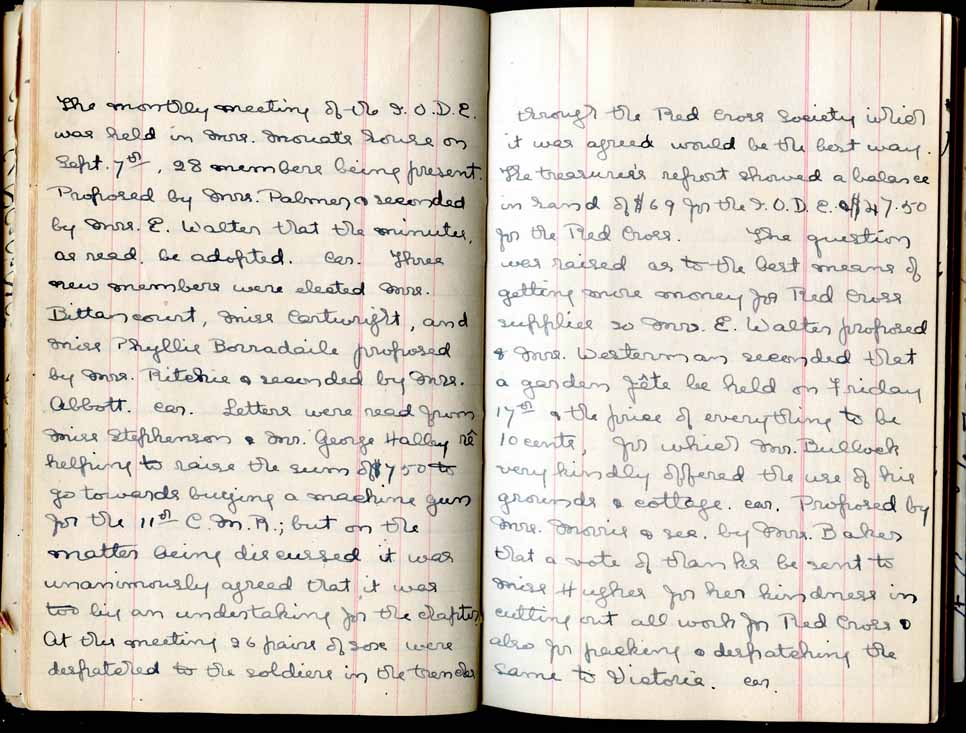 The monthly meeting of the I.O.D.E.
was held in Mrs. Mouat's house on
Sept. 7th, 28 members being present.
Proposed by Mrs. Palmer & seconded
by Mrs. E. Walter that the minutes,
as read, be adopted. car. Three
new members were elected Mrs.
Bittancourt, Miss Cartwright, and
Miss Phyllis Borradaile proposed
by Mrs. Ritchie & seconded by Mrs.
Abbott. car. Letters were read from
Miss Stephenson & Mr. George Halley rê
helping to raise the sum of $750 to
go towards buying a machine gun
for the 11th C.M.R.; but on the
matter being discussed it was
unanimously agreed that it was
too big an undertaking for the chapter
At this meeting 26 pairs of sox were
despatched to the soldiers in the trenches
through the Red Cross Society which
it was agreed would be the best way.
The treasurer's report showed a balance
in hand of $69 for the I.O.D.E. & $47.50
for the Red Cross. The question
was raised as to the best means of
getting more money for Red Cross
supplies so Mrs. E. Walter proposed
& Mrs. Westerman seconded that
a garden fête be held on Friday
17th & the price of everything to be
10 cents, for which Mr. Bullock
very kindly offered the use of his
grounds & cottage. car. Proposed by
Mrs. Morris & sec. by Mrs. Baker
that a vote of thanks be sent to
Miss Hughes for her kindness in
cutting out all work for Red Cross &
also for packing & despatching the
same to Victoria. car.